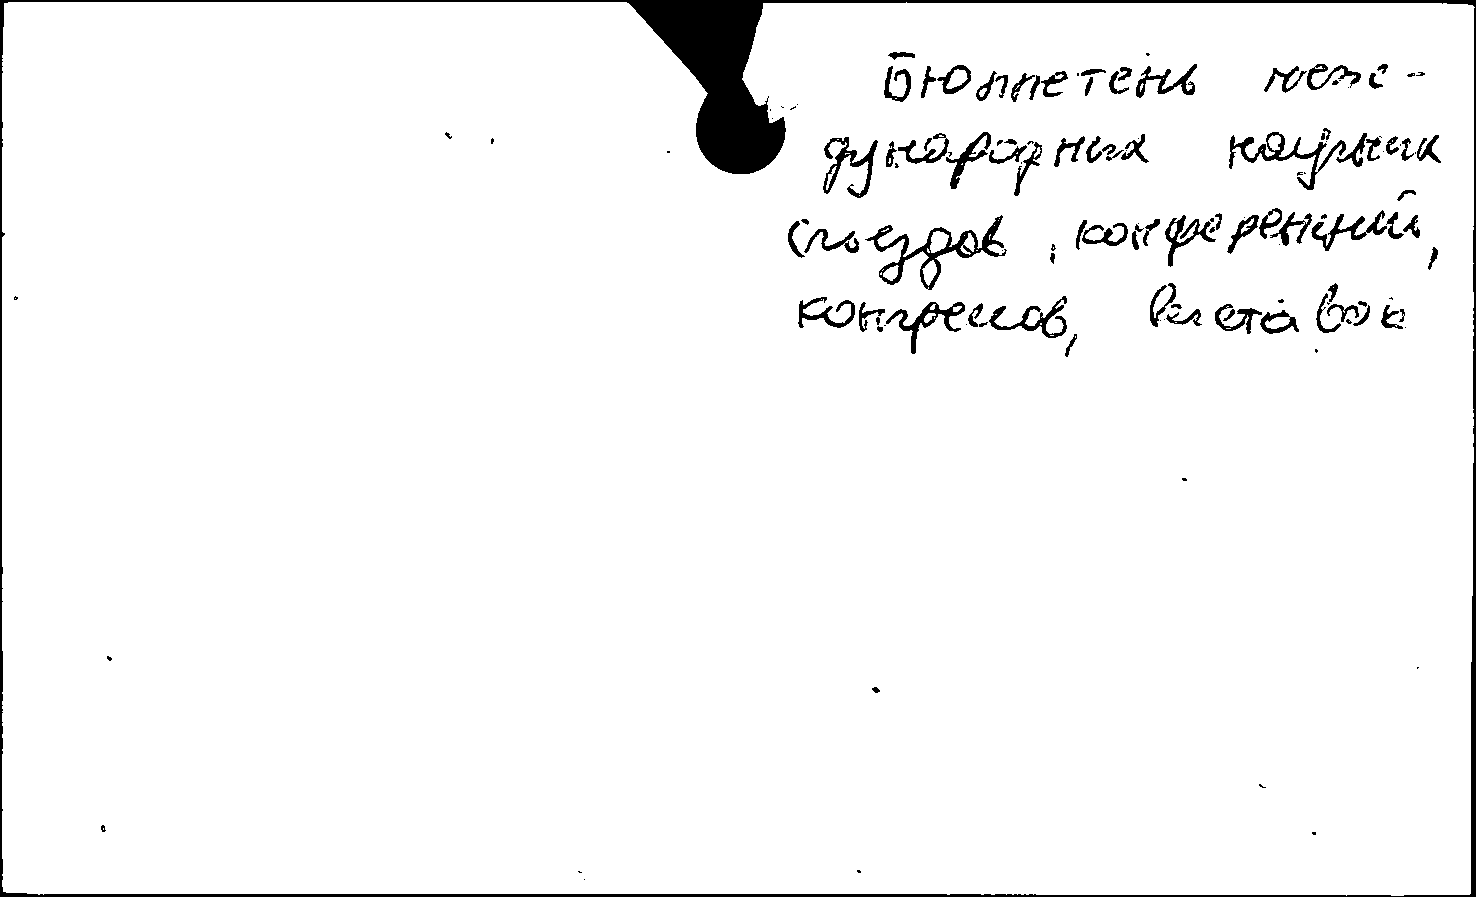 Бюллетень меж-
дународных научных
съездов, конференций,
конгрессов, выставок